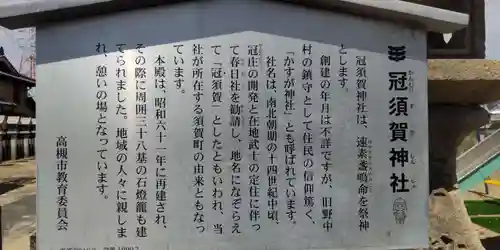 冠須賀神社
かんむりすかじんじゃ
冠須賀神社は、速素盞鳴命を祭神
とします。
創建の年月は不詳ですが、旧野中
村の鎮守として住民の信仰篤く、
「かすが神社」とも呼ばれています。
社名は、南北朝期の十四世紀中頃、
冠庄の開発と在地武士の定住に伴っ
て春日社を勧請し、地名になぞらえ
て「冠須賀」としたともいわれ、当
社が所在する須賀町の由来ともなっ
ています。
本殿は、昭和六十一年に再建され、
その際に周囲三十八基の石燈籠も建
てられました。地域の人々に親しま
れ、憩いの場となっています。
高槻市教育委員会